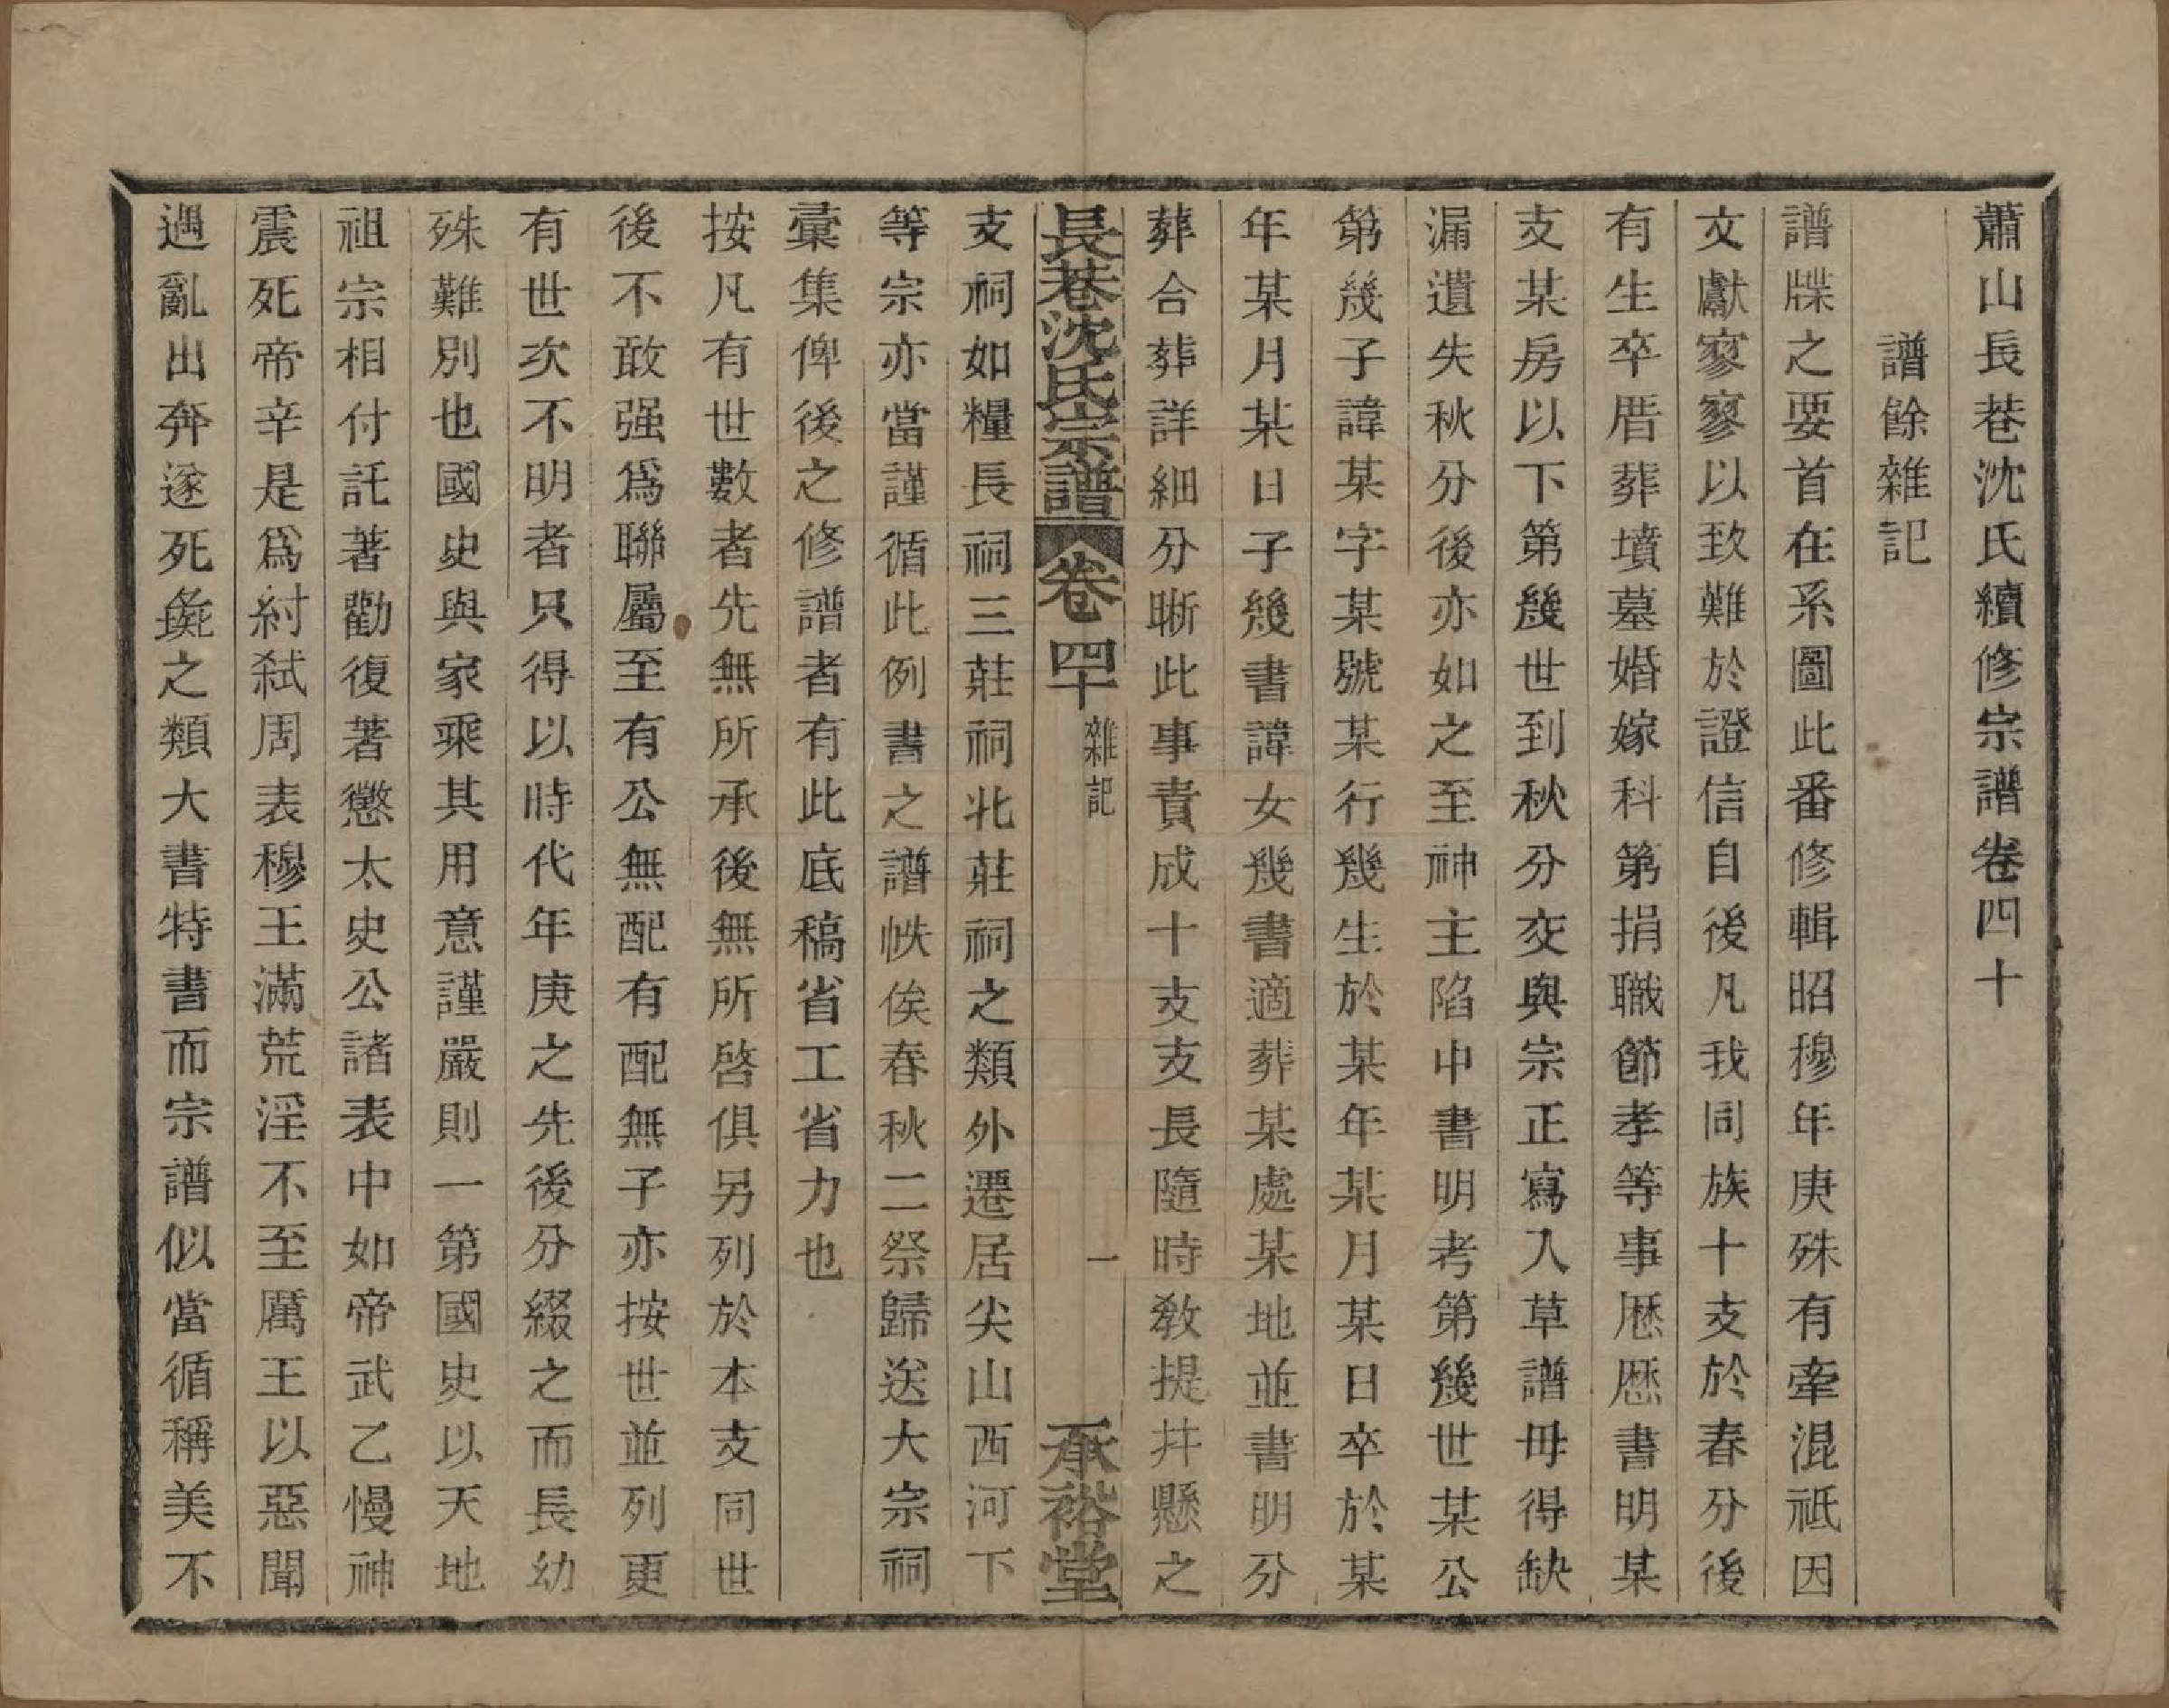 蕭山長巷沈氏續修宗譜卷四十
譜餘雜記
譜牒之要首在系圖此番修輯昭穆年庚殊有牽混祗因
文獻寥寥以致難於證信自後凡我同族十支於春分後
有生卒厝葬墳墓婚嫁科第捐職節孝等事厯厯書明某
支某房以下第幾世到秋分交與宗正寫入草譜毋得缺
漏遺失秋分後亦如之至神主陷中書明考第幾世某公
第幾子諱某字某號某行幾生於某年某月某日卒於某
年某月某日子幾書諱女幾書適葬某處某地並書明分
葬合葬詳細分晰此事責成十支支長隨時敎提井懸之
長巷沈氏宗譜 卷四十 雜記 一 承裕堂
支祠如糧長祠三莊祠北莊祠之類外遷居尖山西河下
等宗亦當謹循此例書之譜帙俟春秋二祭歸送大宗祠
彙集俾後之修譜者有此底稿省工省力也
按凡有世數者先無所承後無所啓俱另列於本支同世
後不敢强爲聯屬至有公無配有配無子亦按世並列更
有世次不明者只得以時代年庚之先後分綴之而長幼
殊難別也國史與家乘其用意謹嚴則一第國史以天地
祖宗相付託著勸復著懲太史公諸表中如帝武乙慢神
震死帝辛是爲紂弒周表穆王滿荒淫不至厲王以惡聞
遇亂出奔遂死彘之類大書特書而宗譜似當循稱美不